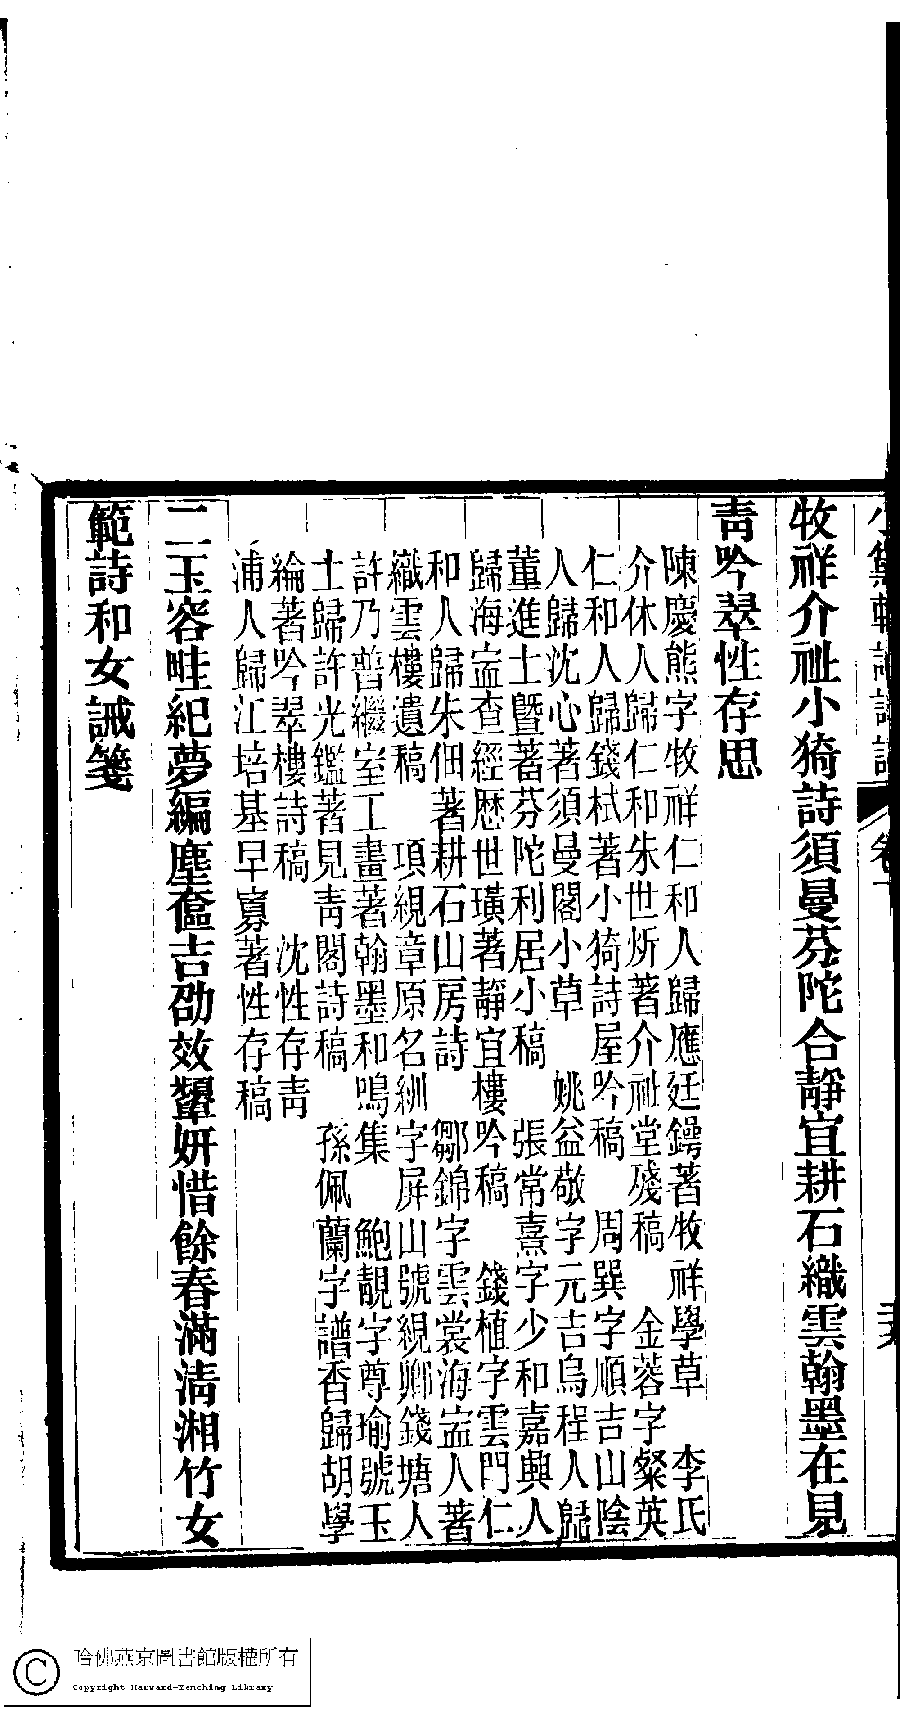 牧祥介祉小猗詩須曼芬陀合靜宜耕石織雲翰墨在見
靑吟翠性存思
陳慶熊字牧祥仁和人歸應廷鍔著牧祥學草 李氏
介休人歸仁和朱世炘著介祉堂殘稿 金蓉字粲英
仁和人歸錢栻著小猗詩屋吟稿 周巽字順吉山陰
人歸沈心著須曼閣小草 姚益敬字元吉烏程人歸
董進士暨著芬陀利居小稿 張常熹字少和嘉興人
歸海寍查經歷世璜著靜宜樓吟稿 錢植字雲門仁
和人歸朱佃著耕石山房詩 鄒錦字雲裳海寍人著
織雲樓遺稿 項緄章原名紃字屏山號緄卿錢塘人
許乃普繼室工畫著翰墨和鳴集 鮑靚字尊瑜號玉
士歸許光鑑著見靑閣詩稿 孫佩蘭字譜香歸胡學
綸著吟翠樓詩稿 沈性存靑
浦人歸江培基早寡著性存稿
二玉容畦紀夢編塵奩吉劭效顰妍惜餘春滿淸湘竹女
範詩和女誡箋
哈佛燕京圖書館版權所有
Copyright Harvard-Yenching Library